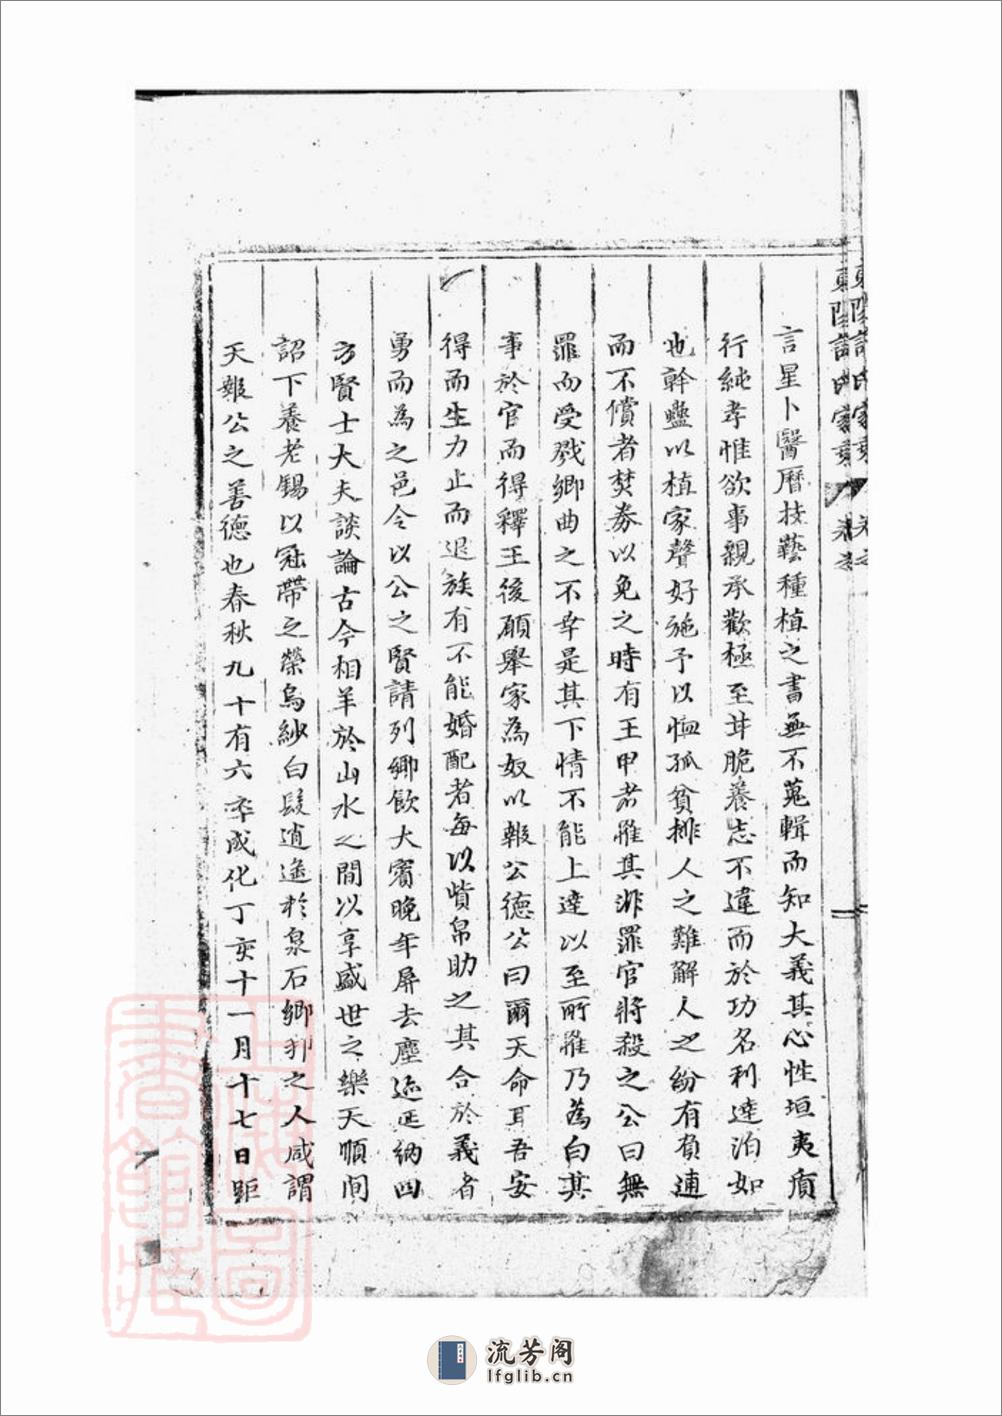 言星卜醫曆技藝種植之書無不蒐輯而知大義其心性坦夷
行純孝惟欲事親承歡極至甘脆養志不違而於功名利達泊如
也幹蠱以植家聲好施予以恤孤貧排人之難解人之紛有負逋
而不償者焚券以免之時有王甲者罹其非罪官將殺之公曰無
罪而受戮鄉曲之不幸是其下情不能上達以至所罹乃為白其
事於官而得釋王後願舉家為奴以報公德公曰爾天命耳吾安
得而生力止而退族有不能婚配者每以貲帛助之其合於義者
勇而為之邑令以公之賢請列鄉飲大賓晚年屏去塵迹延納四
方賢士大夫談論古今相羊於山水之間以享盛世之樂天順間
詔下養老錫以冠帶之榮烏紗白髮逍遙於泉石鄉邦之人咸謂
天報公之善德也春秋九十有六卒成化丁亥十一月十七日距
上海圖書館藏
流芳阁
lfglib.cn